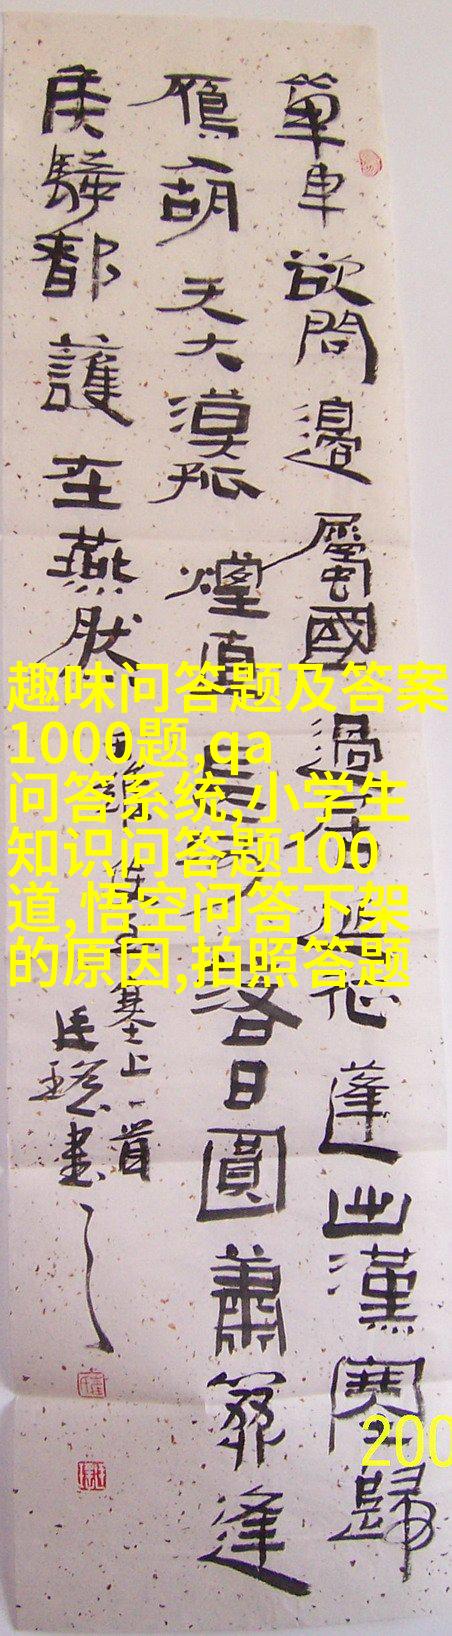 單車欲問邊屬國過居延蓬出漢塞歸
鴈入胡天大漠孤煙直長河落日圓蕭逢
騎都護在燕然
王維使至塞上一首
書
趣味问答题及答案
1000题,qa
问答系统,小学生
知识问答题100
道,悟空问答下架
的原因,拍照答题
200